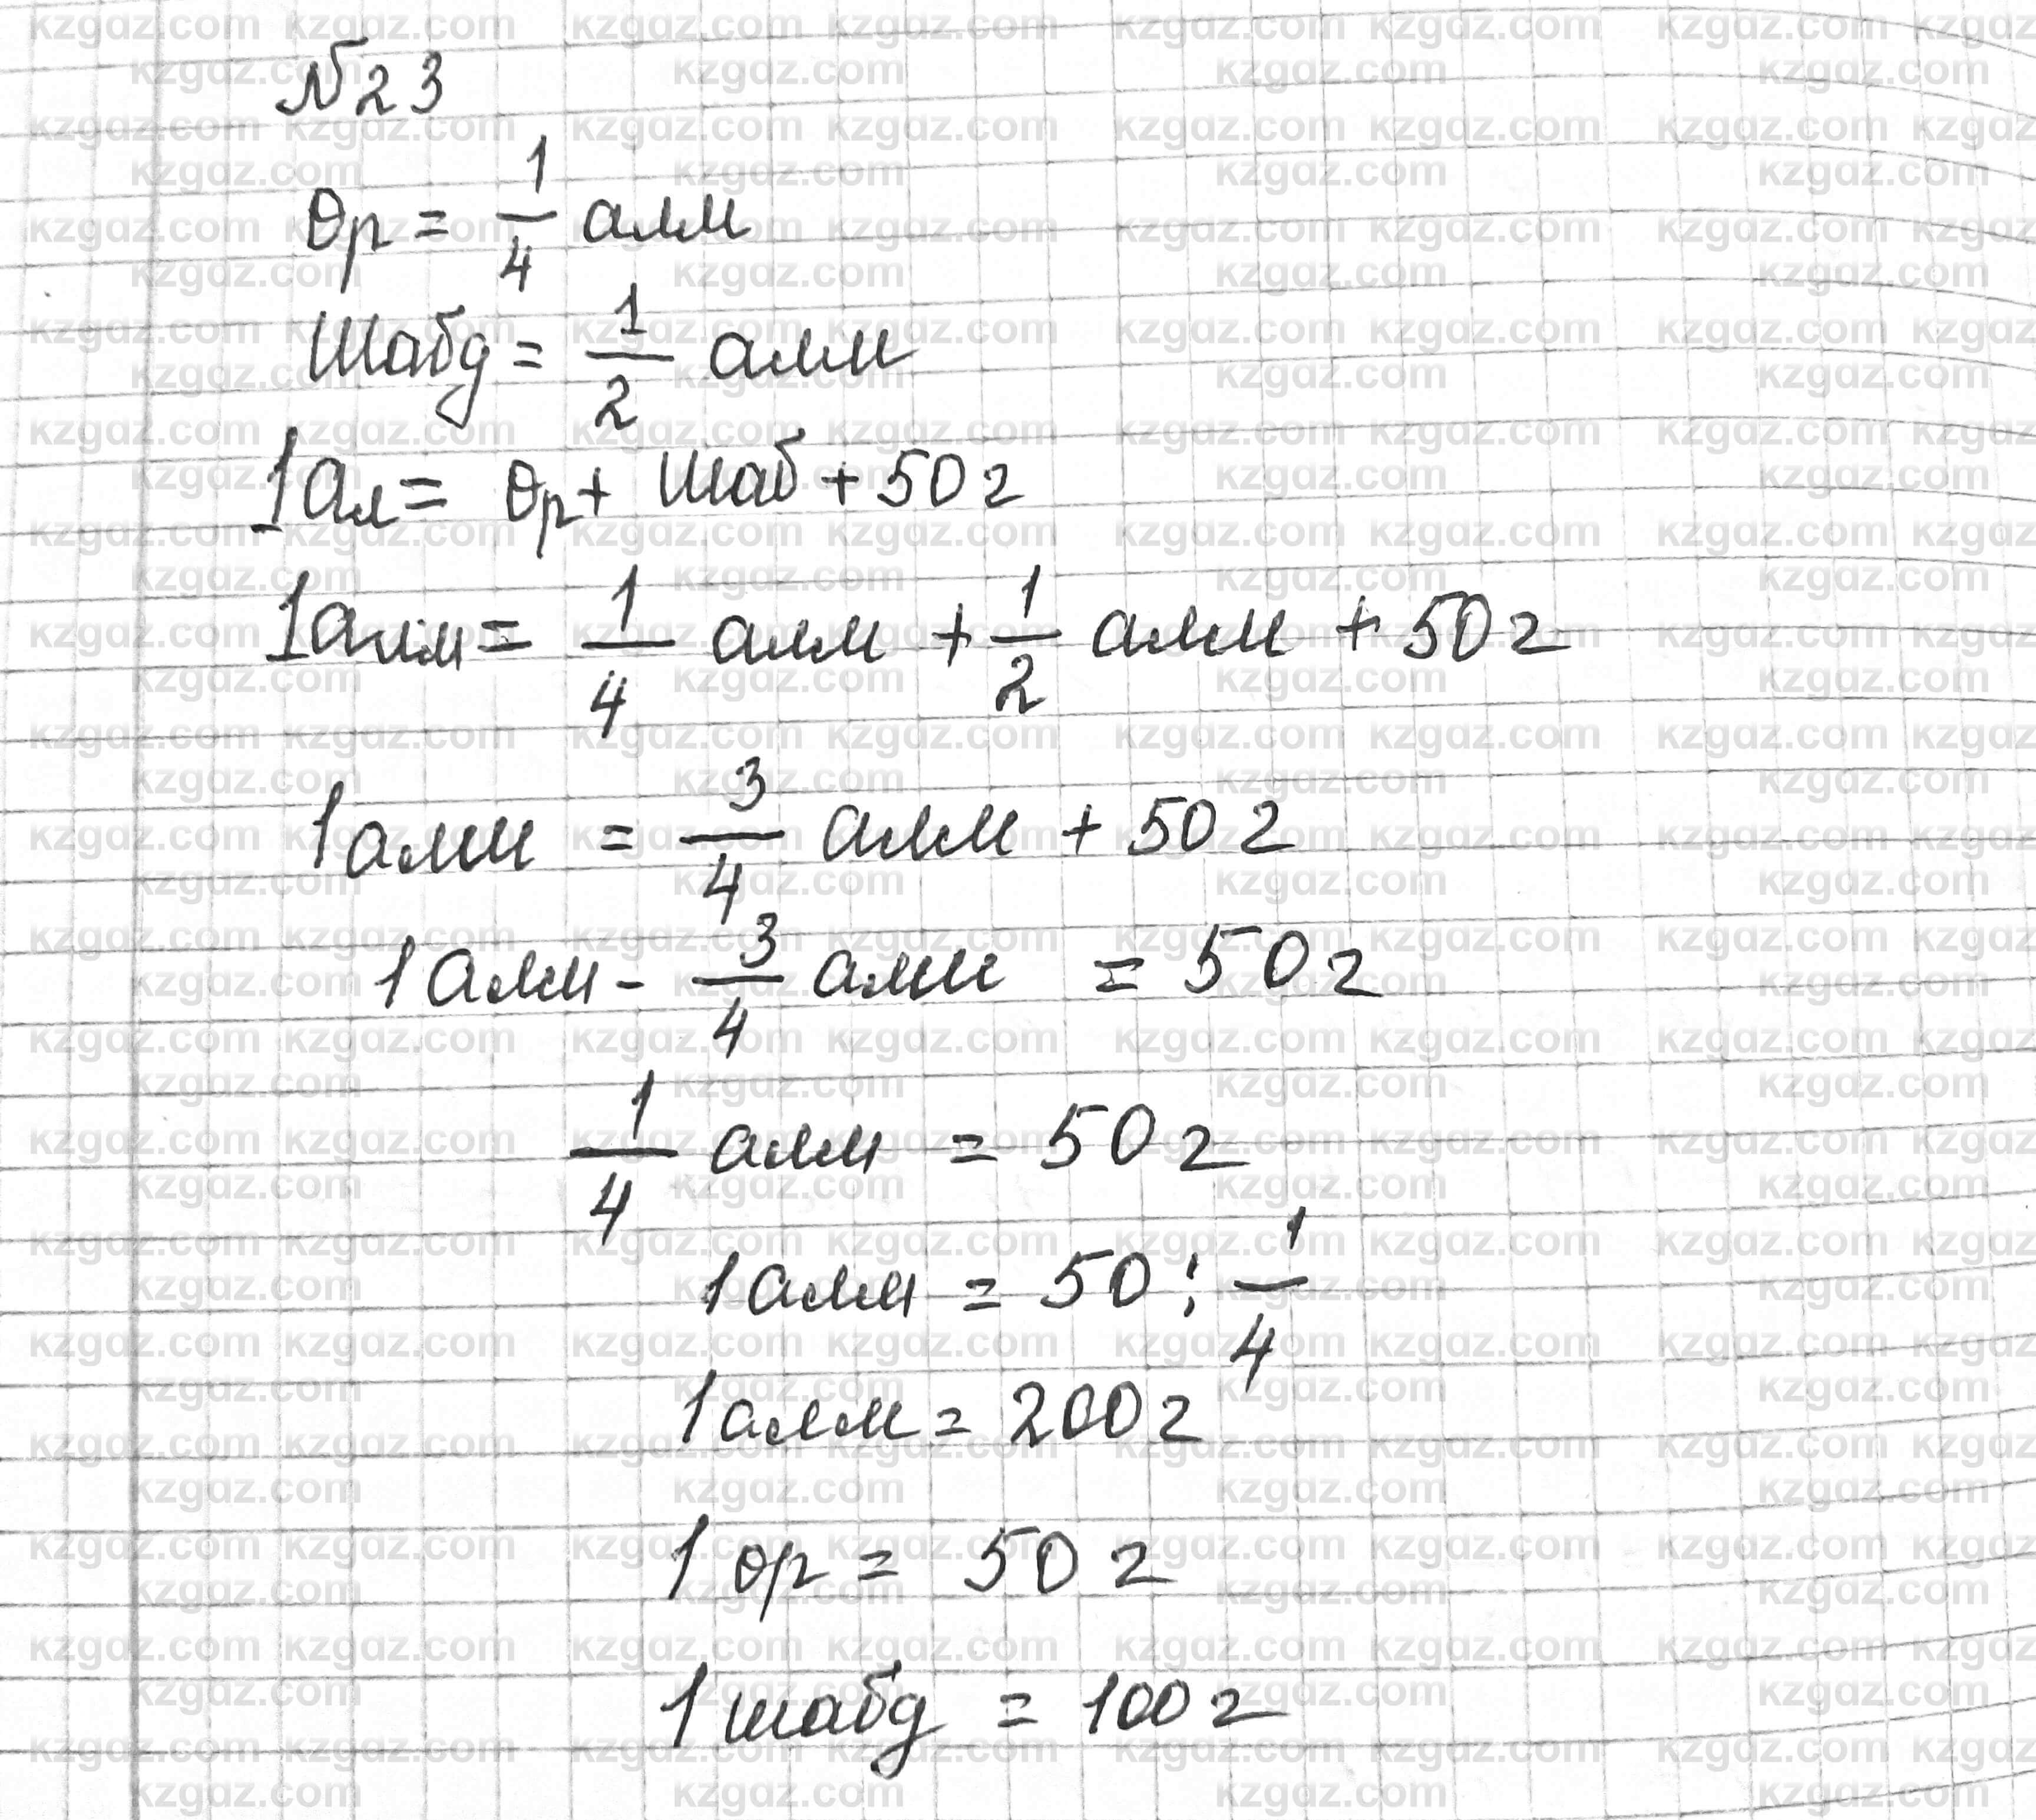 №23
өр = 1/4 алм
Шабд = 1/2 алм
1ал = өр + шаб + 50 г
1алм = 1/4 алм + 1/2 алм + 50 г
1алм = 3/4 алм + 50 г
1алм - 3/4 алм = 50 г
1/4 алм = 50 г
1алм = 50 : 1/4
1алм = 200 г
1 өр = 50 г
1 шабд = 100 г
kzgaz.com